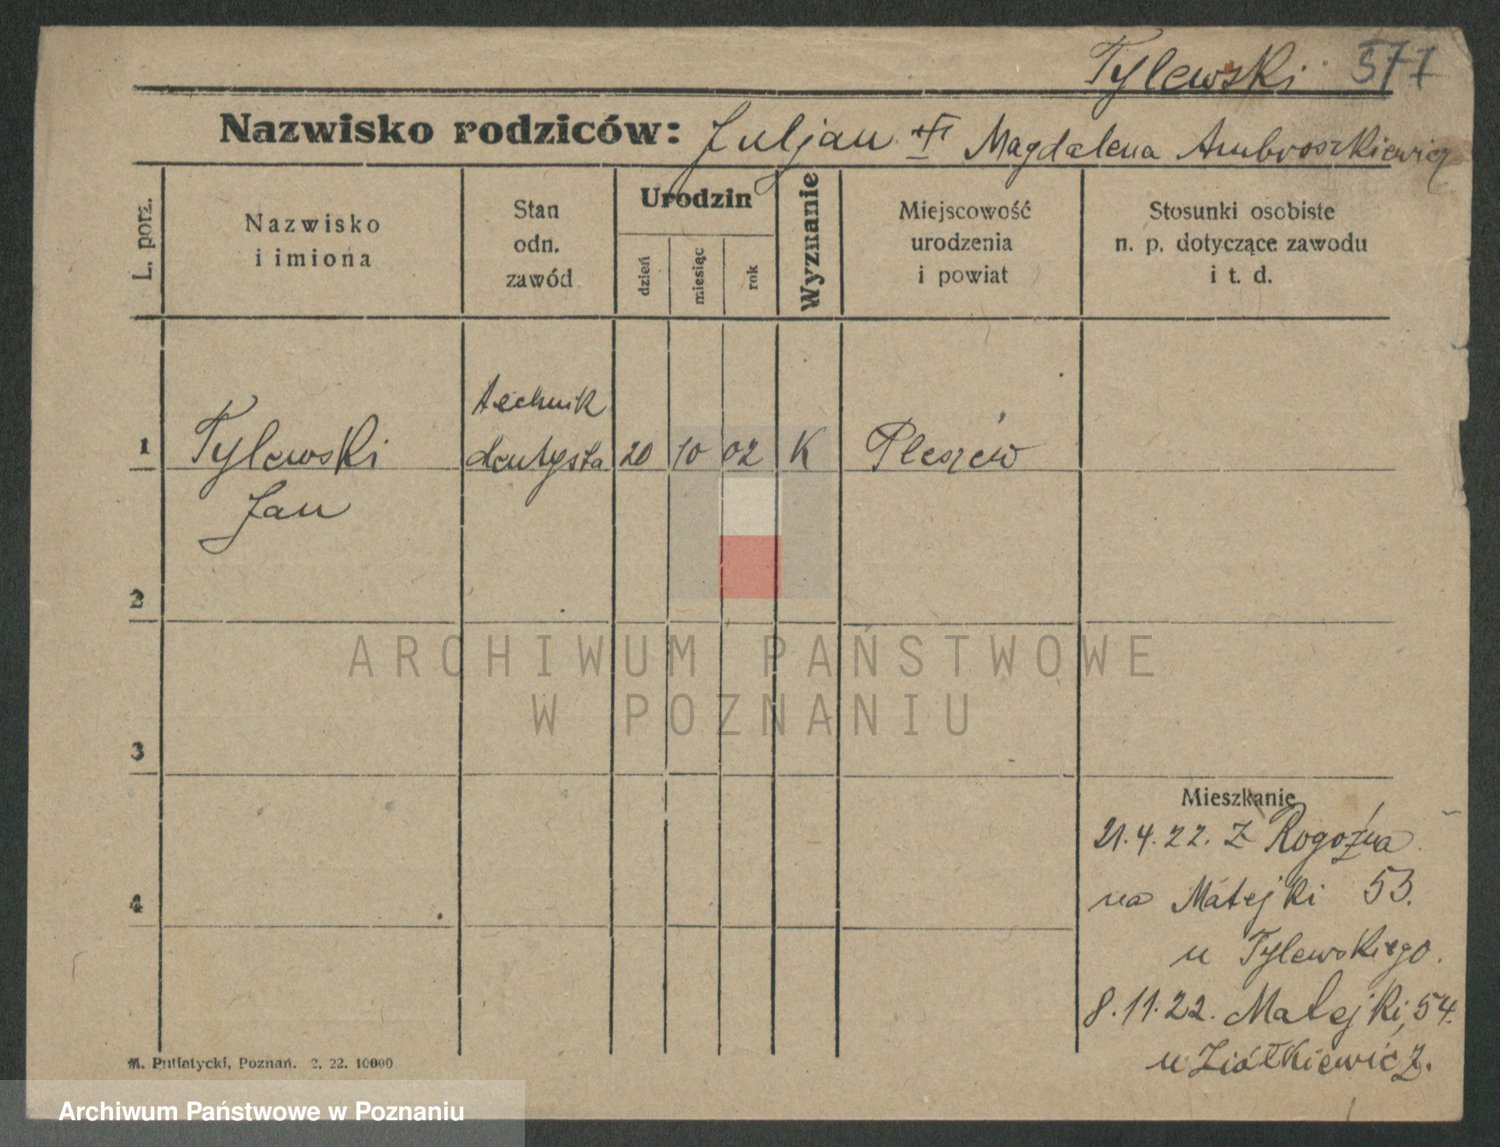 Tylewski 571
Nazwisko rodziców: Juljan Magdalena Ambroszkiewicz
L. porz.
Nazwisko
i imiona
Stan
odn.
zawód
Urodzin
dzień
miesiąc
rok
Wyznanie
Miejscowość
urodzenia
i powiat
Stosunki osobiste
n. p. dotyczące zawodu
i t. d.
technik
1 Tylewski dentysta 20 10 02 K Pleszew
Jan
2
ARCHIWUM PAŃSTWOWE
W POZNANIU
3
Mieszkanie
21.4.22. z Rogoźna
na Matejki 53.
4
u Tylewskiego.
8.11.22. Matejki, 54.
u Ziółkiewicz.
M. Putiatycki, Poznań. 2. 22. 10000
Archiwum Państwowe w Poznaniu